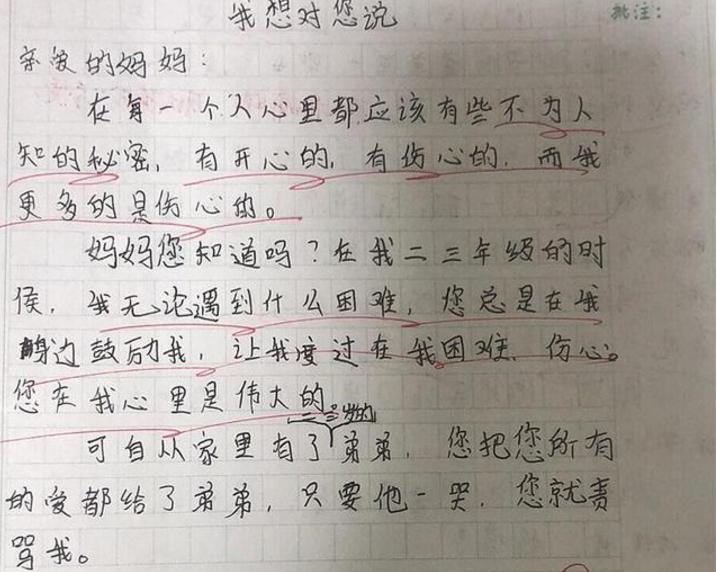 我想对您说
批注：
亲爱的妈妈：
在每一个人心里都应该有些不为人
知的秘密，有开心的，有伤心的，而我
更多的是伤心的。
妈妈您知道吗？在我二三年级的时
侯，我无论遇到什么困难，您总是在我
身边鼓励我，让我度过在我困难、伤心。
您在我心里是伟大的
可自从家里有了弟弟，您把您所有
的爱都给了弟弟，只要他一哭，您就责
骂我。